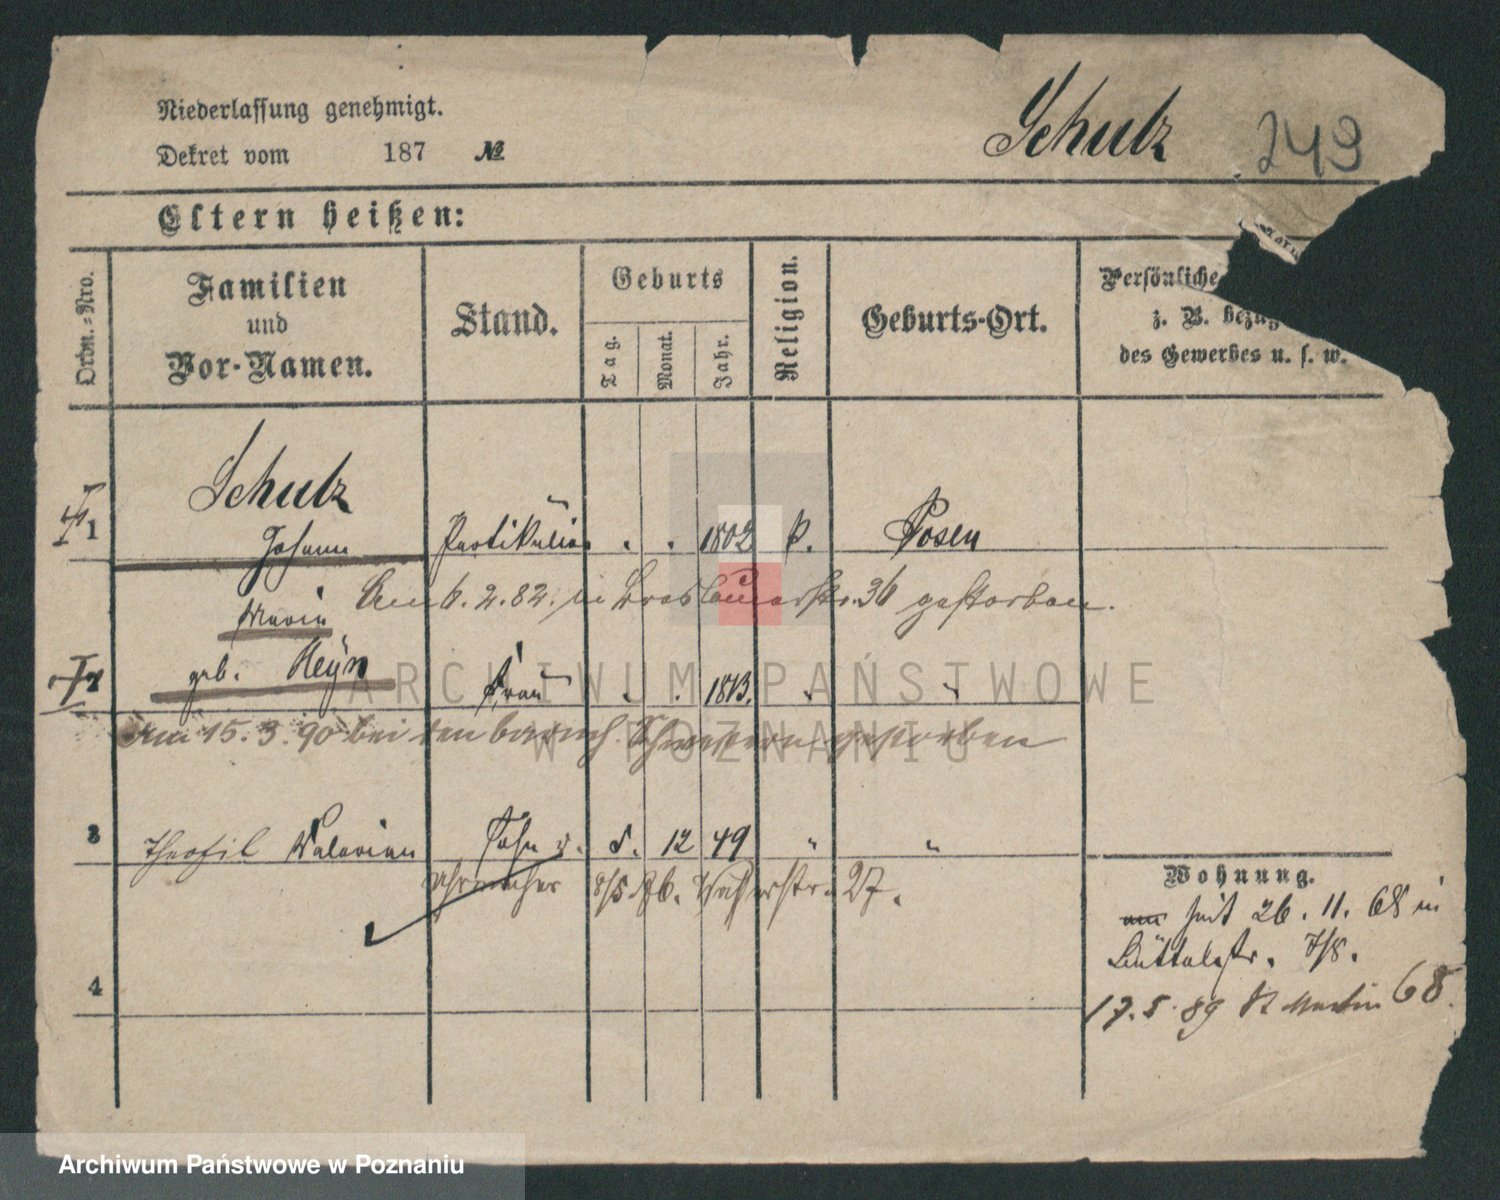 Niederlassung genehmigt.
Dekret vom 187 №
Schulz 249
Eltern heißen:
Ordn.-Nro.
Familien
und
Vor-Namen.
Stand.
Geburts
Tag.
Monat.
Jahr.
Religion.
Geburts-Ort.
Persönliche
z. B. bezüg
des Gewerbes u. s. w.
Schulz
1 Johann Partikulier . . 1802 k. Posen
Am 6.2.82. in Breslauerstr. 36 gestorben.
Maria
2 geb. Heyn Frau . . 1813. " "
Am 15.3.90 bei den barmh. Schwestern gestorben
3 Theofil Valerian Sohn 5. 12 49 " "
Uhrmacher 8/5 76. Wasserstr. 27.
4
Wohnung.
am seit 26. 11. 68 in
Büttelstr. 7/8.
17.5.89 St Martin 68.
ARCHIWUM PAŃSTWOWE
W POZNANIU
Archiwum Państwowe w Poznaniu